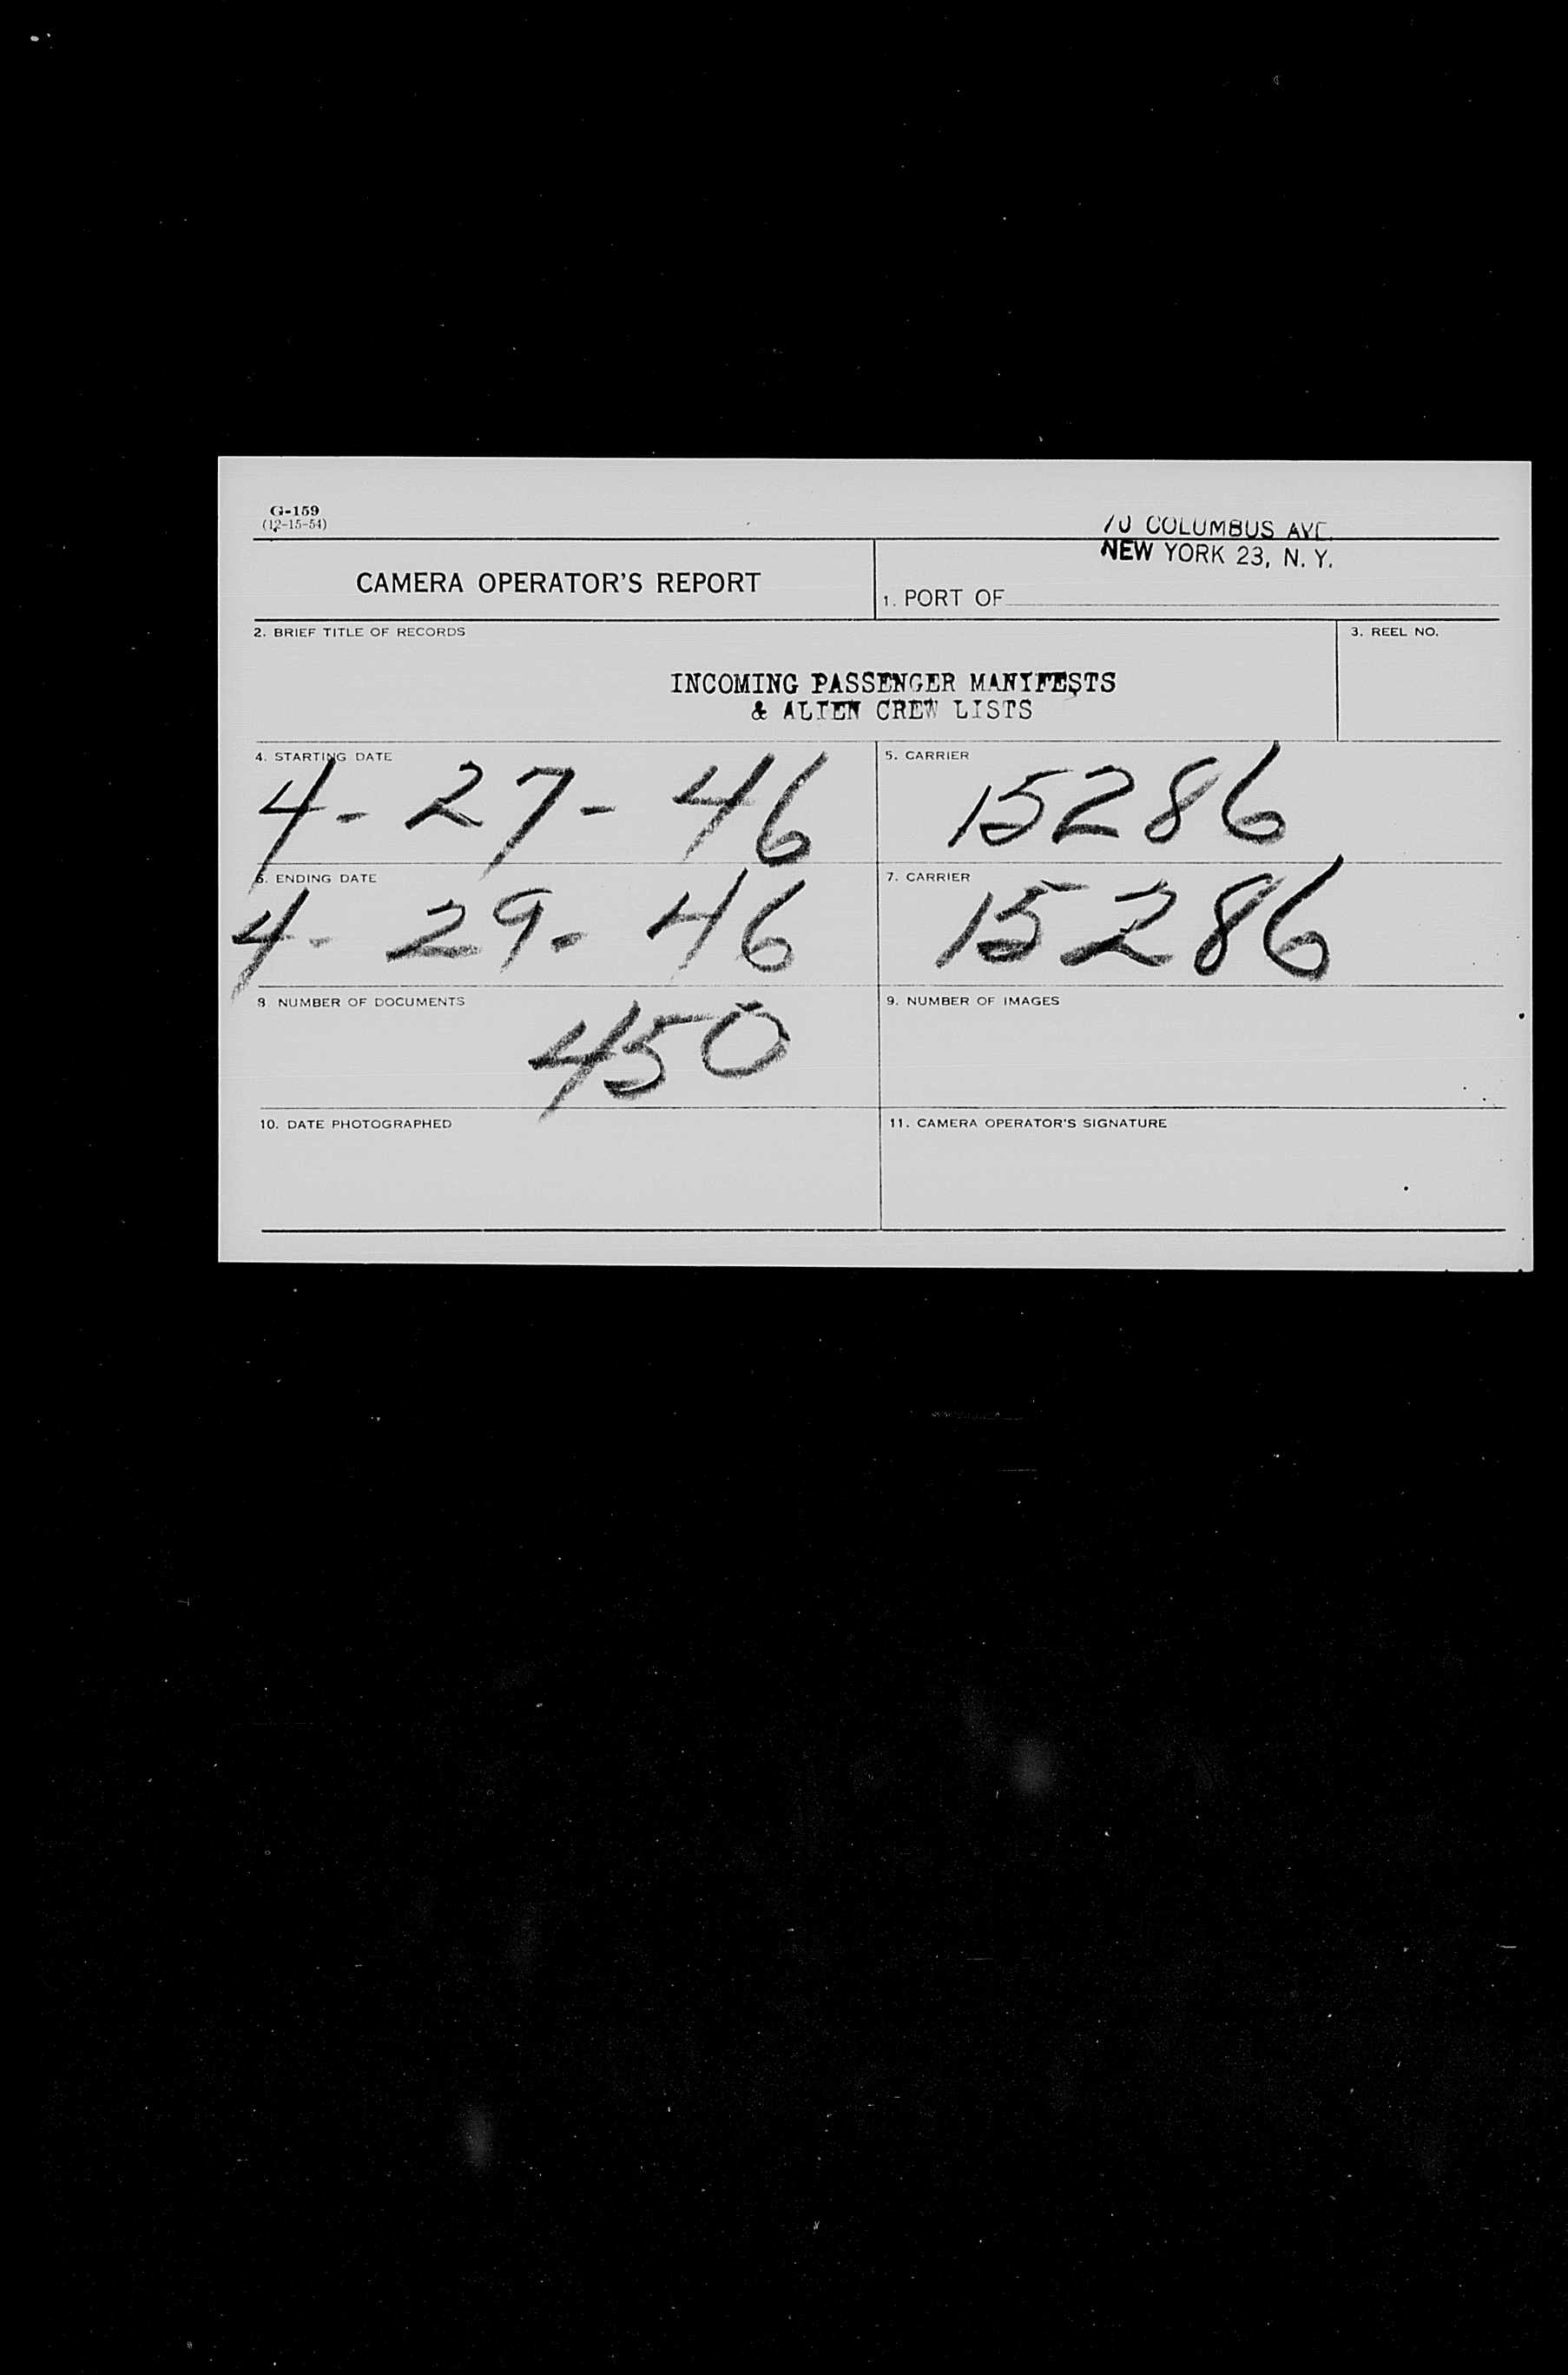 G-159
(12-15-54)
70 COLUMBUS AVE.
NEW YORK 23, N. Y.
CAMERA OPERATOR'S REPORT
1. PORT OF
2. BRIEF TITLE OF RECORDS
3. REEL NO.
INCOMING PASSENGER MANIFESTS
& ALIEN CREW LISTS
4. STARTING DATE
4-27-46
5. CARRIER
15286
6. ENDING DATE
4-29-46
7. CARRIER
15286
8. NUMBER OF DOCUMENTS
450
9. NUMBER OF IMAGES
10. DATE PHOTOGRAPHED
11. CAMERA OPERATOR'S SIGNATURE